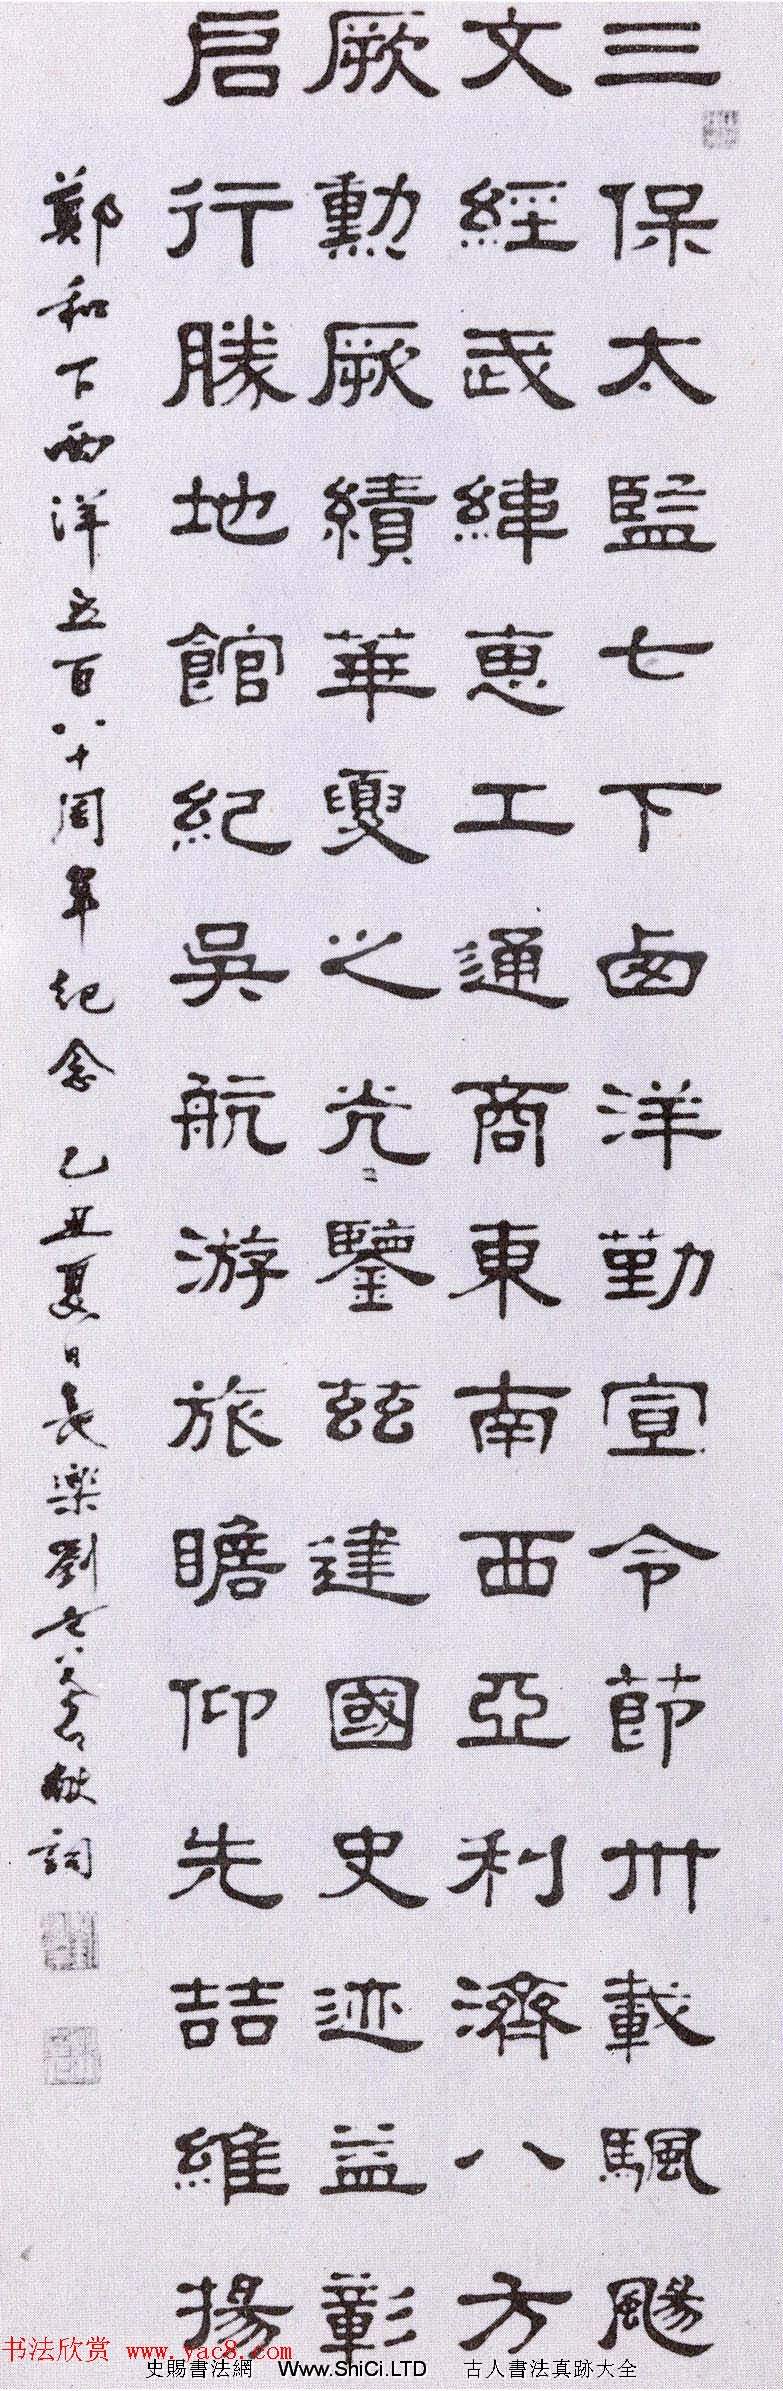 三保太監七下卥洋勤宣令節卅載颿颺
文經武緯惠工通商東南西亞利濟八方
厥勳厥績華夏之光鑒茲建國史迹益彰
启行勝地館紀吳航游旅瞻仰先喆維揚
鄭和下西洋五百八十周年紀念 乙丑夏日長樂劉老蒼獻詞
书法欣赏 www.yac8.com
史賜書法網 Www.ShiCi.LTD 古人書法真跡大全